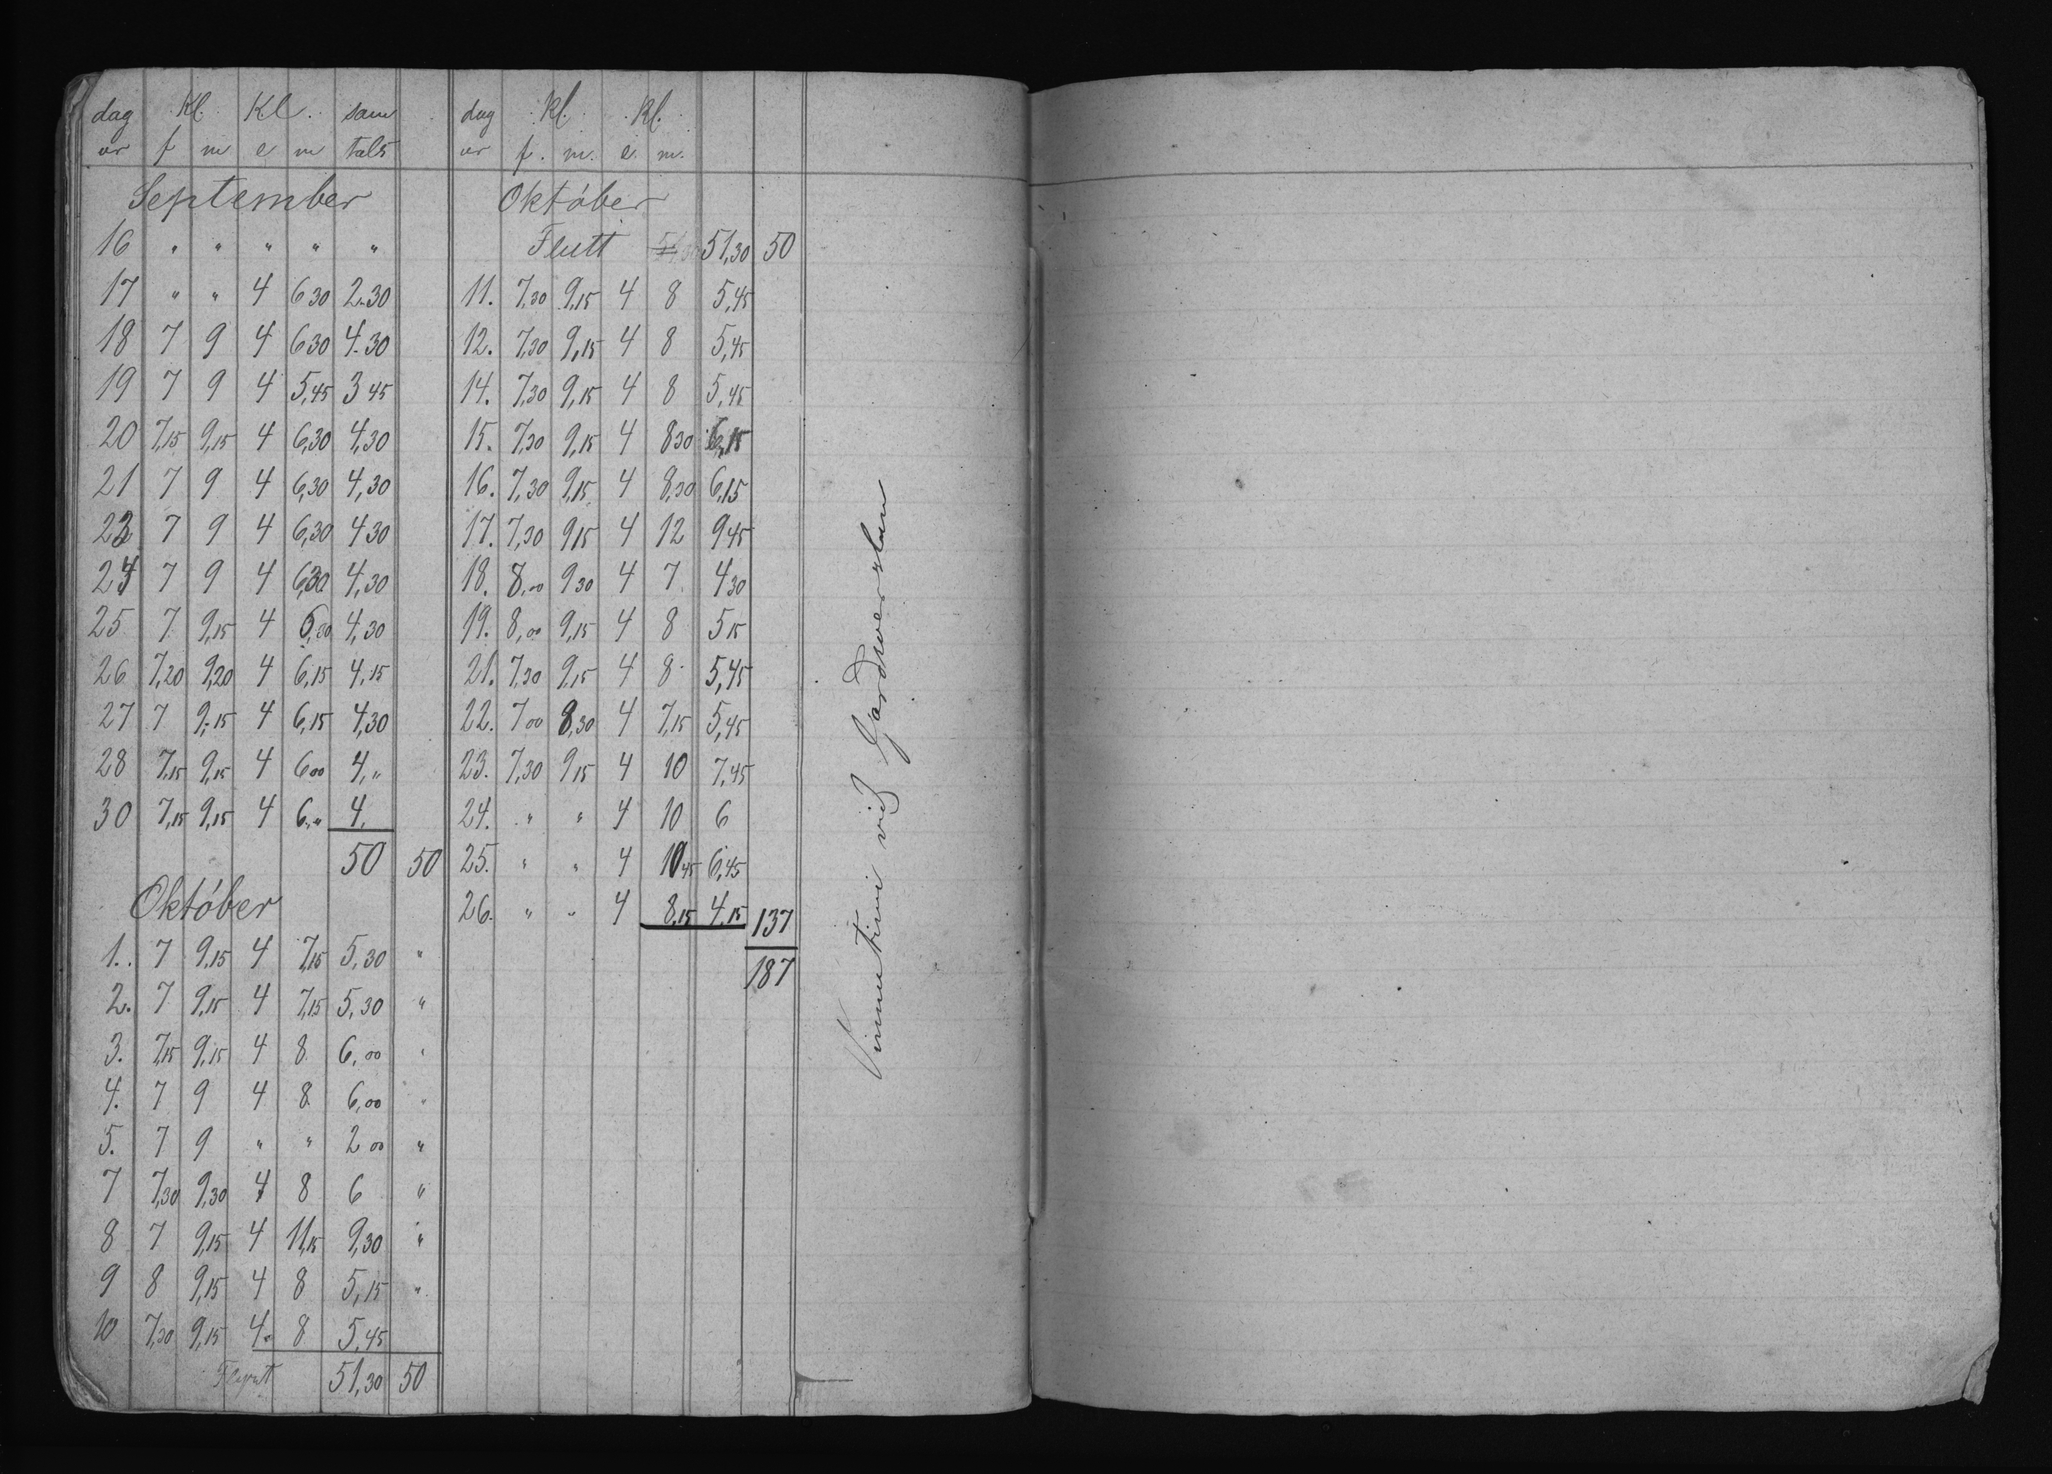 dag Kl. Kl. sam
ar f m e m tals
September
16 " " " " "
17 " " 4 6 30 2.30
18 7 9 4 6 30 4.30
19 7 9 4 5,45 3 45
20 7,15 9,15 4 6,30 4,30
21 7 9 4 6,30 4,30
7 9 4 6,30 4 30
24 7 9 4 6,30 4,30
25 7 9,15 4 6,30 4,30
26 7,20 9,20 4 6,15 4,15
27 7 9,15 4 6,15 4,30
28 7,15 9,15 4 6 00 4,"
30 7,15 9,15 4 6," 4.
50 50
Október
1. 7 9,15 4 7,15 5,30 "
2. 7 9,15 4 7,15 5,30 "
3. 7,15 9,15 4 8 6,00 "
4. 7 9 4 8 6,00 "
5. 7 9 " " 2 00 "
7 7,30 9,30 4 8 6 "
8 7 9,15 4 11,15 9,30 "
9 8 9,15 4 8 5,15 "
10 7,30 9,15 4. 8 5,45
51,30 50
dag kl. kl.
ar f. m. e. m.
Október
Flutt 51,30 50
11. 7,30 9,15 4 8 5,45
12. 7,30 9,15 4 8 5,45
14. 7,30 9,15 4 8 5,45
15. 7,30 9,15 4 8 30 6,15
16. 7,30 9,15 4 8,30 6,15
17. 7,30 9 15 4 12 9 45
18. 8,00 9 30 4 7 4 30
19. 8,00 9,15 4 8 5 15
21. 7,30 9,15 4 8 5,45
22. 7 00 8,30 4 7,15 5,45
23. 7,30 9 15 4 10 7,45
24. " " 4 10 6
25. " " 4 10 45 6,45
26. " " 4 8,15 4,15 137
187
Vinnutimi við